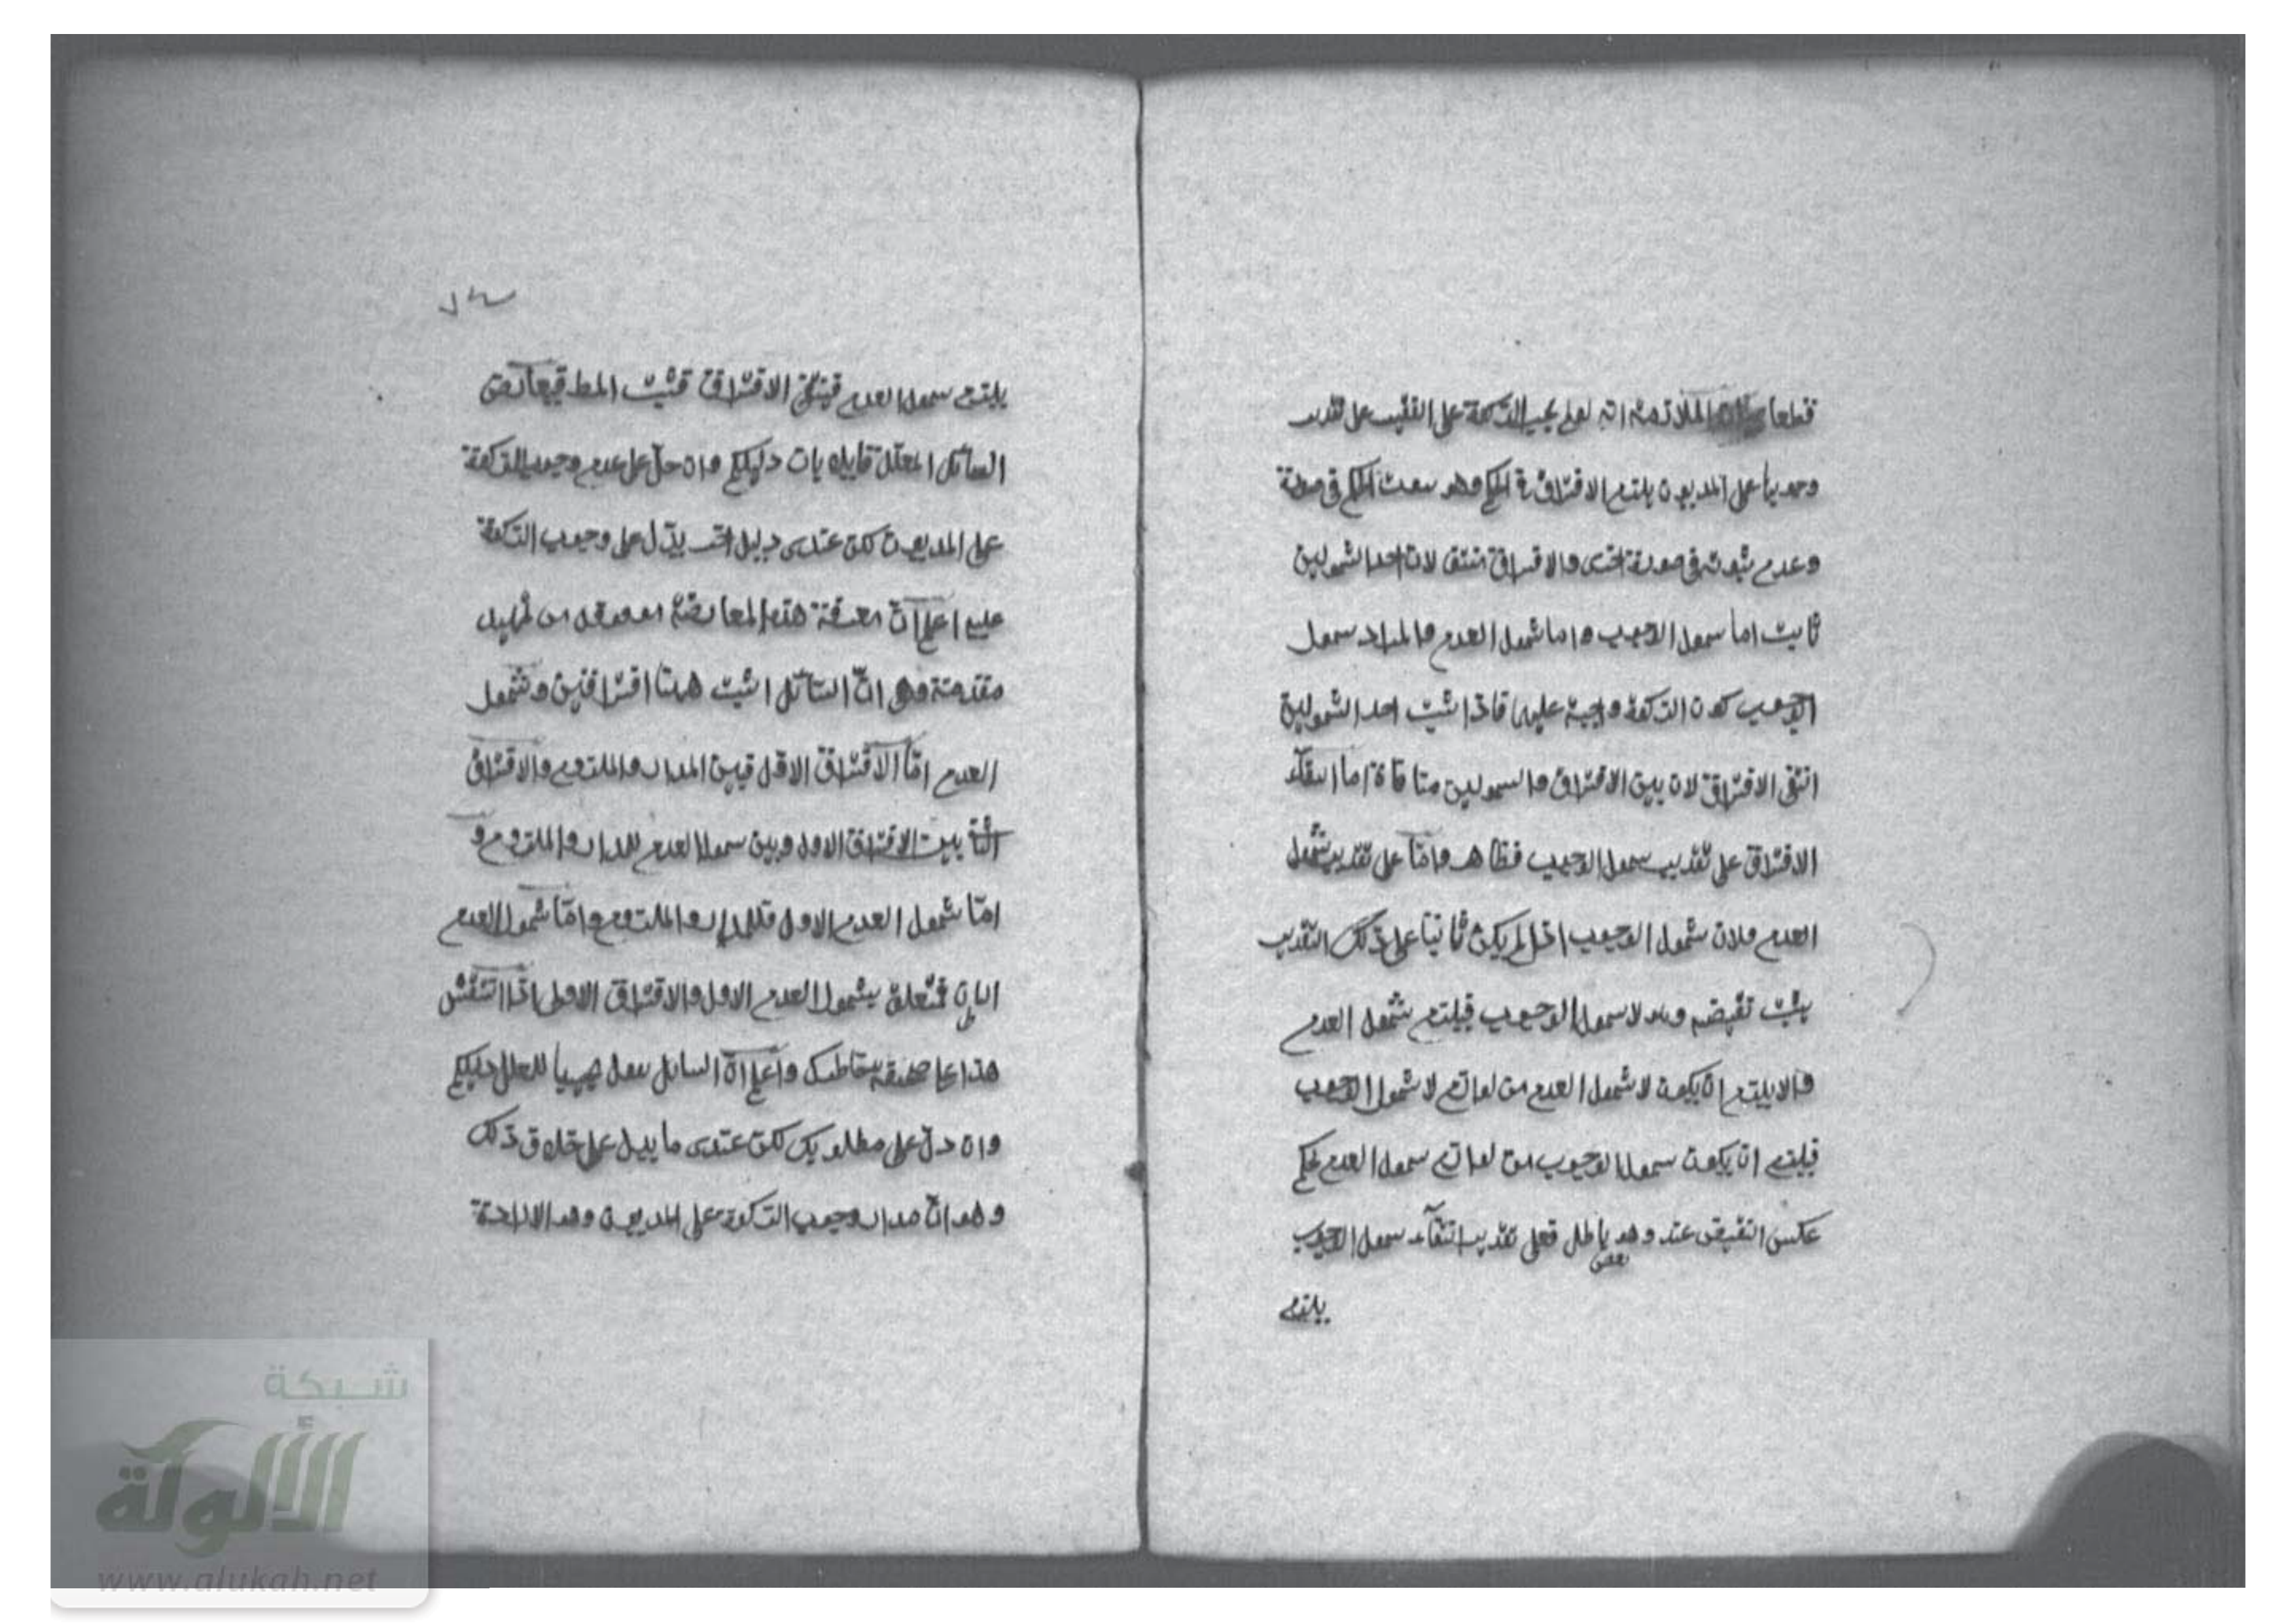 قطعا الملازمة انه لو لم يجب الزكوة على الفقير على تقدير
وجوبها على المديون يلزم الافتراق في الحكم وهو ثبوت الحكم في صورة
وعدم ثبوته في صورة اخرى والافتراق منتف لان احد الشمولين
ثابت اما شمول الوجوب واما شمول العدم والمراد شمول
الوجوب كون الزكوة واجبة عليهما فاذا اثبت احد الشمولين
انتفى الافتراق لان بين الافتراق والشمولين منافاة اما انتفآء
الافتراق على تقدير شمول الوجوب فظاهر وامّا على تقدير شمول
العدم فلان شمول الوجوب اذا لم يكن ثابتا على ذلك التقدير
يثبت نقيضه وهو لا شمول الوجوب فيلزم شمول العدم
والا يلزم ان يكون لا شمول العدم من لوازم لا شمول الوجوب
فيلزم ان يكون شمول الوجوب من لوازم شمول العدم بحكم
عكس النقيض عند وهو باطل فعلى تقدير انتفآء شمول الوجوب
بعض
يلزم
شمول العدم فينتفي الافتراق فثبت المط
السائل المعلل قايلا بان دليلكم وان دلّ على عدم وجوب الزكوة
على المديون لكن عندى دليل اخر يدّل على وجوب الزكوة
عليه اعلم انّ معرفة هذه المعارضة موقوفة على تمهيد
مقدمة وهى انّ السائل اثبت هنا افتراقين وشمول
العدم امّا الافتراق الاول فبين المدار والملزوم والافتراق
الثانى بين الافتراق الاول وبين شمول العدم للمدار والملزوم و
امّا شمول العدم الاول فللمدار والملزوم وامّا شمول العدم
الثانى فتعلق بشمول العدم الاول والافتراق الاول اذا انتقش
هذا على صحيفة خاطرك واعلم انّ السائل يقول مجيبا للمعلل دليلكم
وان دلّ على مطلوبك لكن عندى ما يدل على خلاف ذلك
وهو انّ مدار وجوب الزكوة على المديون وهو
شبكة
الألوكة
www.alukah.net